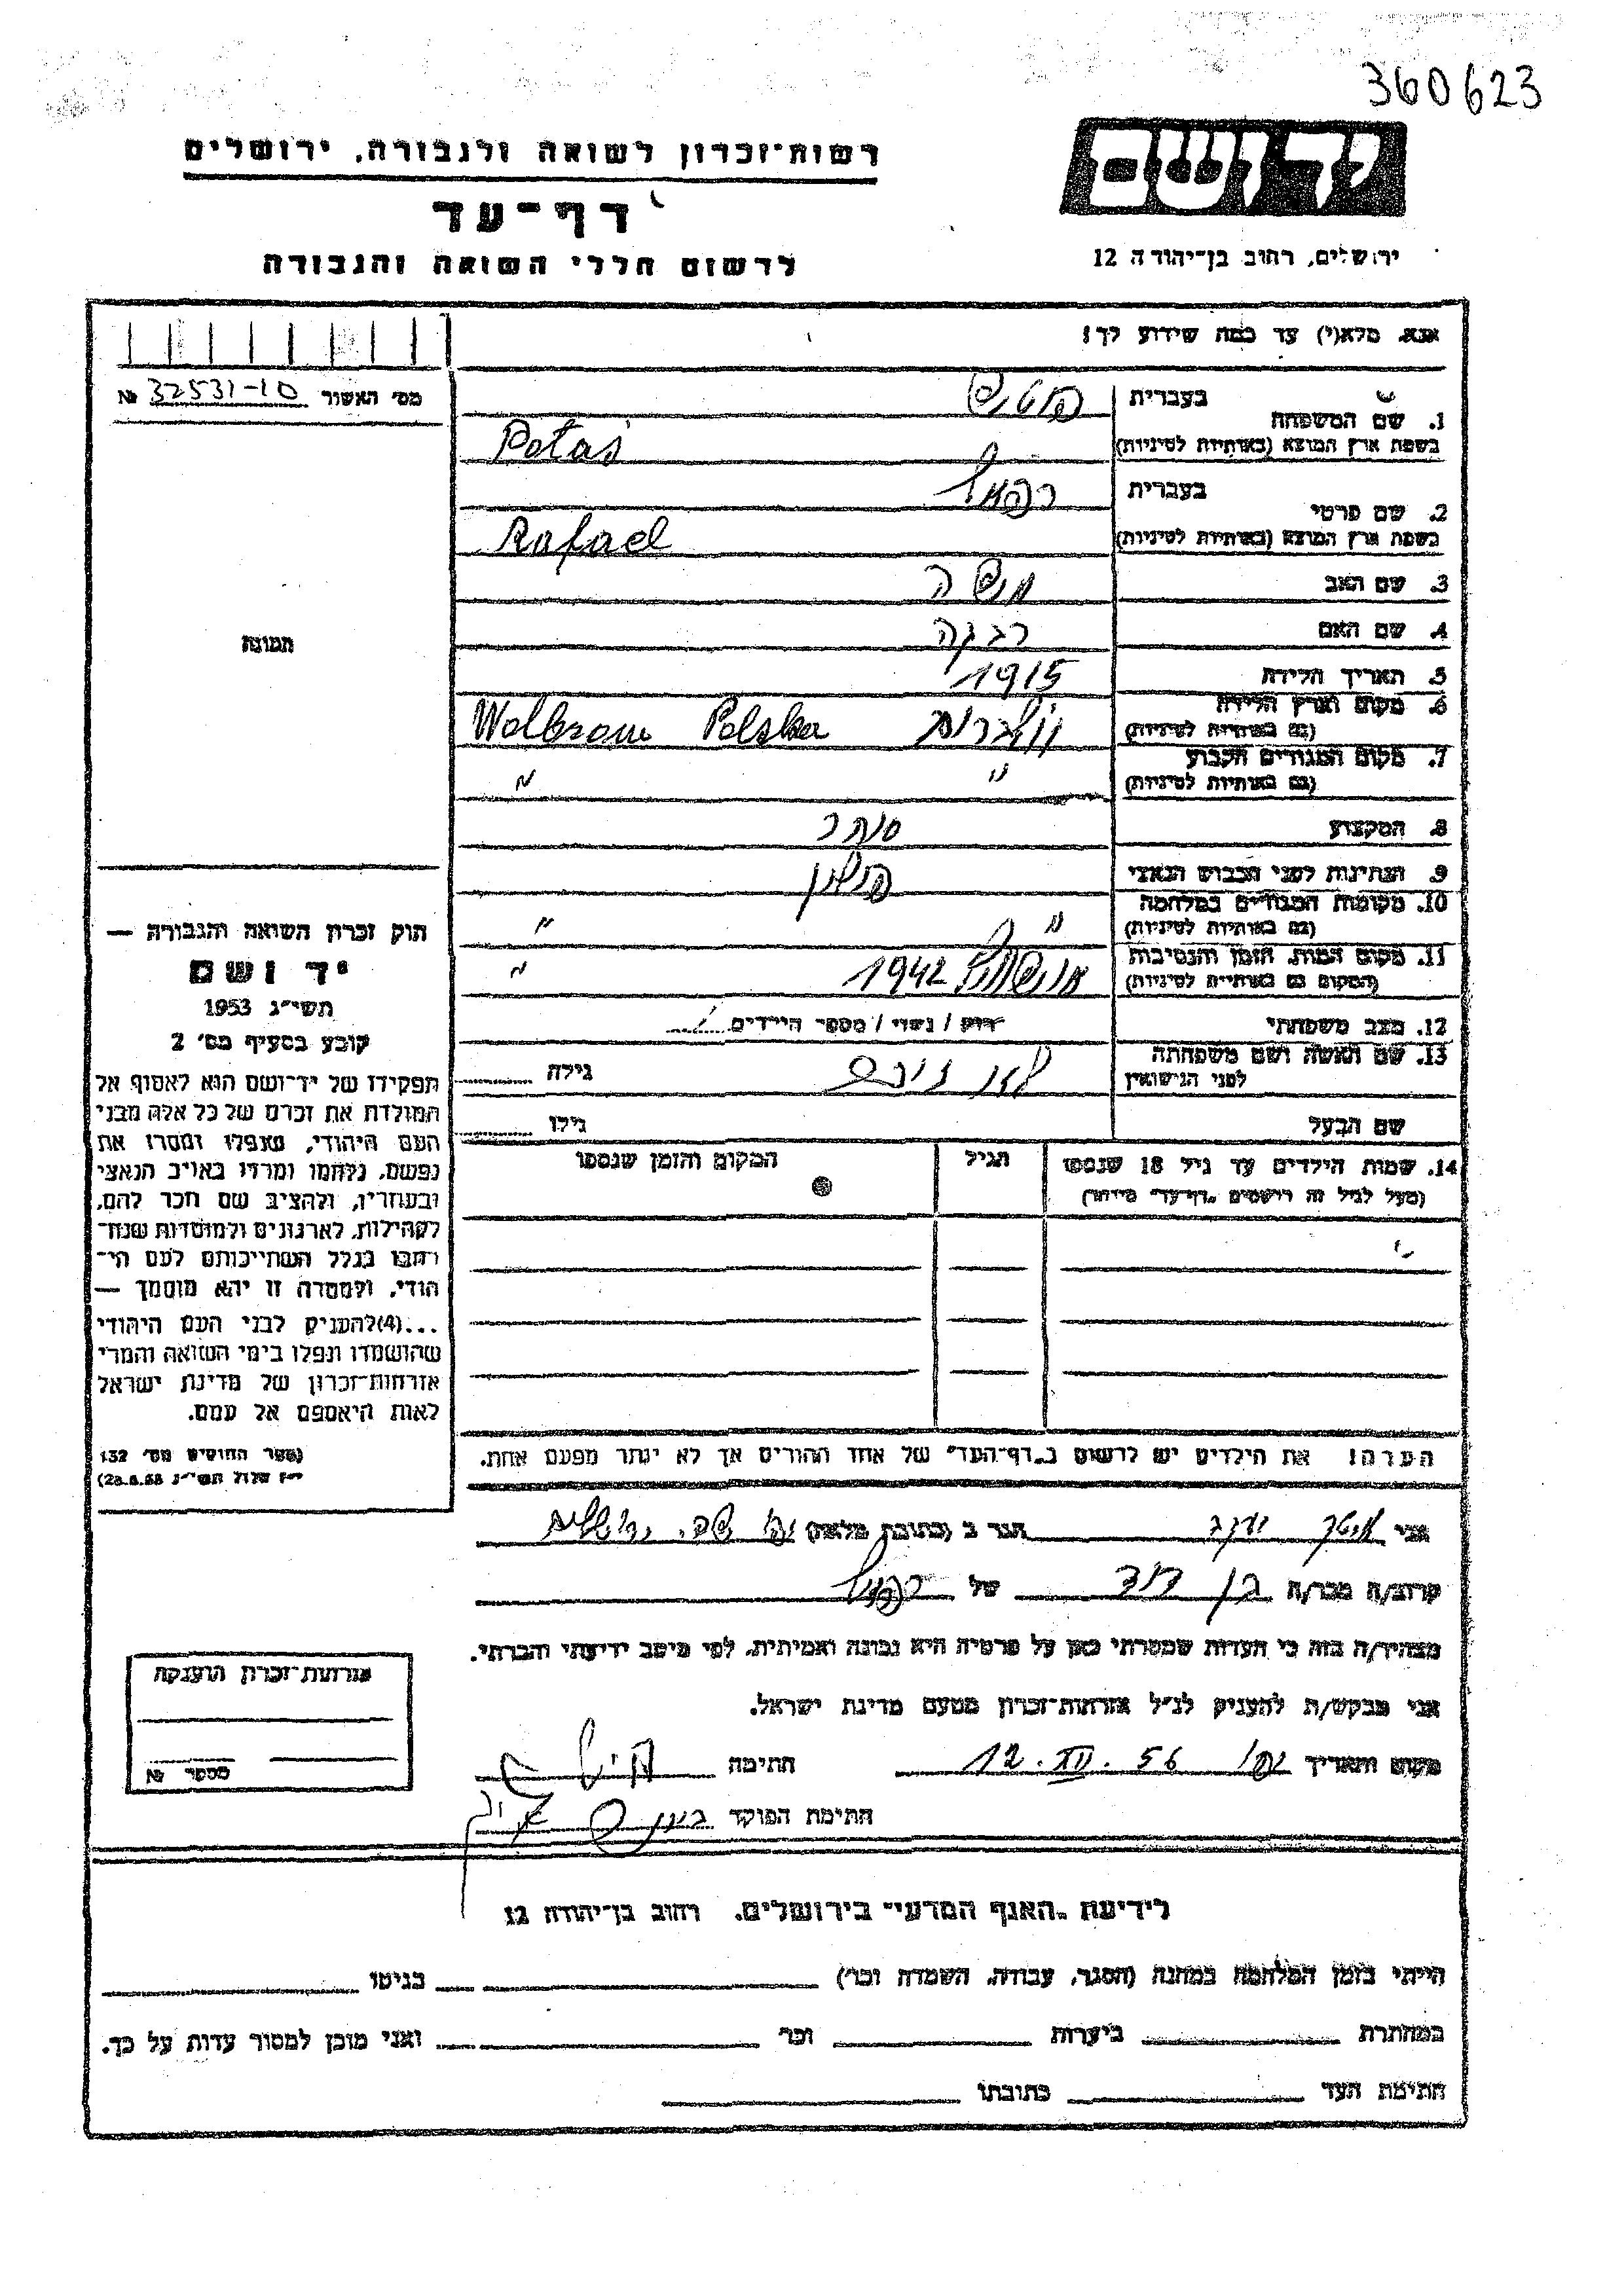 360623
יד ושם
ירושלים, רחוב בן־יהודה 12
רשות־זכרון לשואה ולגבורה, ירושלים
דף־עד
לרשום חללי השואה והגבורה
אנא, מלא(י) עד כמה שידוע לך!
מס׳ האשור 32531-10 №
1. שם המשפחה
בעברית פוטש
בשפת ארץ המוצא (באותיות לטיניות) Potaś
2. שם פרטי
בעברית רפאל
בשפת ארץ המוצא (באותיות לטיניות) Rafael
3. שם האב משה
4. שם האם רבקה
5. תאריך הלידה 1915
6. מקום וארץ הלידה
(גם באותיות לטיניות) וולברום Wolbrom Polska
7. מקום המגורים הקבוע
(גם באותיות לטיניות) " "
8. המקצוע סוחר
9. הנתינות לפני הכבוש הנאצי פולין
10. מקומות המגורים במלחמה
(גם באותיות לטיניות) " "
11. מקום המות, הזמן והנסיבות
(המקום גם באותיות לטיניות) 1942 "
12. מצב משפחתי רווק / נשוי / מספר הילדים
13. שם האשה ושם משפחתה
לפני הנישואין גילה
שם הבעל גילו
14. שמות הילדים עד גיל 18 שנספו
(מעל לגיל זה רושמים „דף־עד״ מיוחד)
הגיל
המקום והזמן שנספו
הערה! את הילדים יש לרשום ב„דף־העד״ של אחד ההורים אך לא יותר מפעם אחת.
תמונה
חוק זכרון השואה והגבורה —
יד ושם
תשי״ג 1953
קובע בסעיף מס׳ 2
תפקידו של יד־ושם הוא לאסוף אל
המולדת את זכרם של כל אלה מבני
העם היהודי, שנפלו ומסרו את
נפשם, נלחמו ומרדו באויב הנאצי
ובעוזריו, ולהציב שם וזכר להם,
לקהילות, לארגונים ולמוסדות שנח־
רבו בגלל השתייכותם לעם הי־
הודי, ולמטרה זו יהא מוסמך —
...(4) להעניק לבני העם היהודי
שהושמדו ונפלו בימי השואה והמרי
אזרחות־זכרון של מדינת ישראל
לאות היאספם אל עמם.
(ספר החוקים מס׳ 132
י״ז אלול תשי״ג 28.8.53)
אני יעקב הגר ב (כתובת מלאה) ירושלים
קרוב/ה מכר/ה בן דוד של רפאל
מצהיר/ה בזה כי העדות שמסרתי כאן על פרטיה היא נכונה ואמיתית, לפי מיטב ידיעתי והכרתי.
אני מבקש/ת להעניק לנ״ל אזרחות־זכרון מטעם מדינת ישראל.
מקום ותאריך 12.XII.56 חתימה
חתימת הפוקד
אזרחות־זכרון הוענקה
מספר №
לידיעת „האגף המדעי״ בירושלים, רחוב בן־יהודה 12
הייתי בזמן המלחמה במחנה (הסגר, עבודה, השמדה וכו׳) בגיטו
במחתרת ביערות וכו׳ ואני מוכן למסור עדות על כך.
חתימת העד כתובתו